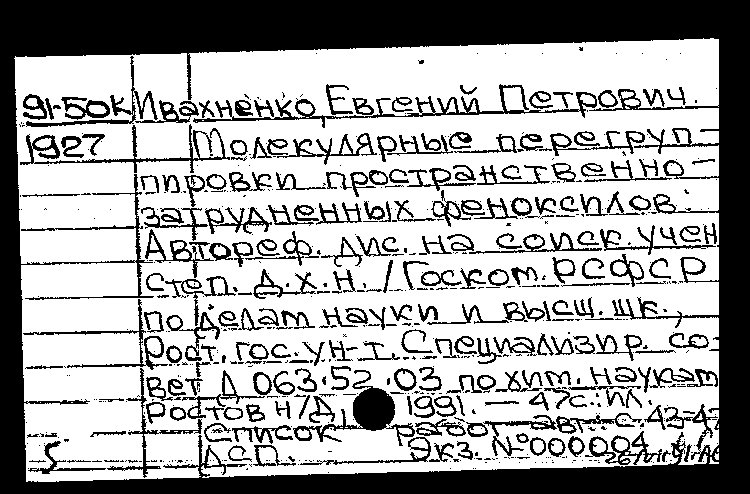 91-50К Ивахненко, Евгений Петрович.
1927 Молекулярные перегруп-
пировки пространственно-
затрудненных феноксилов:
Автореф. дис. на соиск. учен
степ. д.х.н. / Госком. РСФСР
по делам науки и высш. шк.,
Рост. гос. ун-т. Специализир. со-
вет Д 063.52.03 по хим. наукам
Ростов н/Д, 1991. — 47с.: ил.
Список работ авт.: с. 43-47
5 ДСП. Экз. №000004